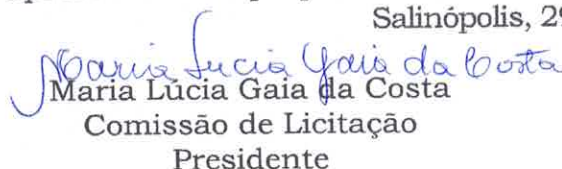 Salinópolis, 29
Maria Lucia Gaia da Costa
Maria Lúcia Gaia da Costa
Comissão de Licitação
Presidente